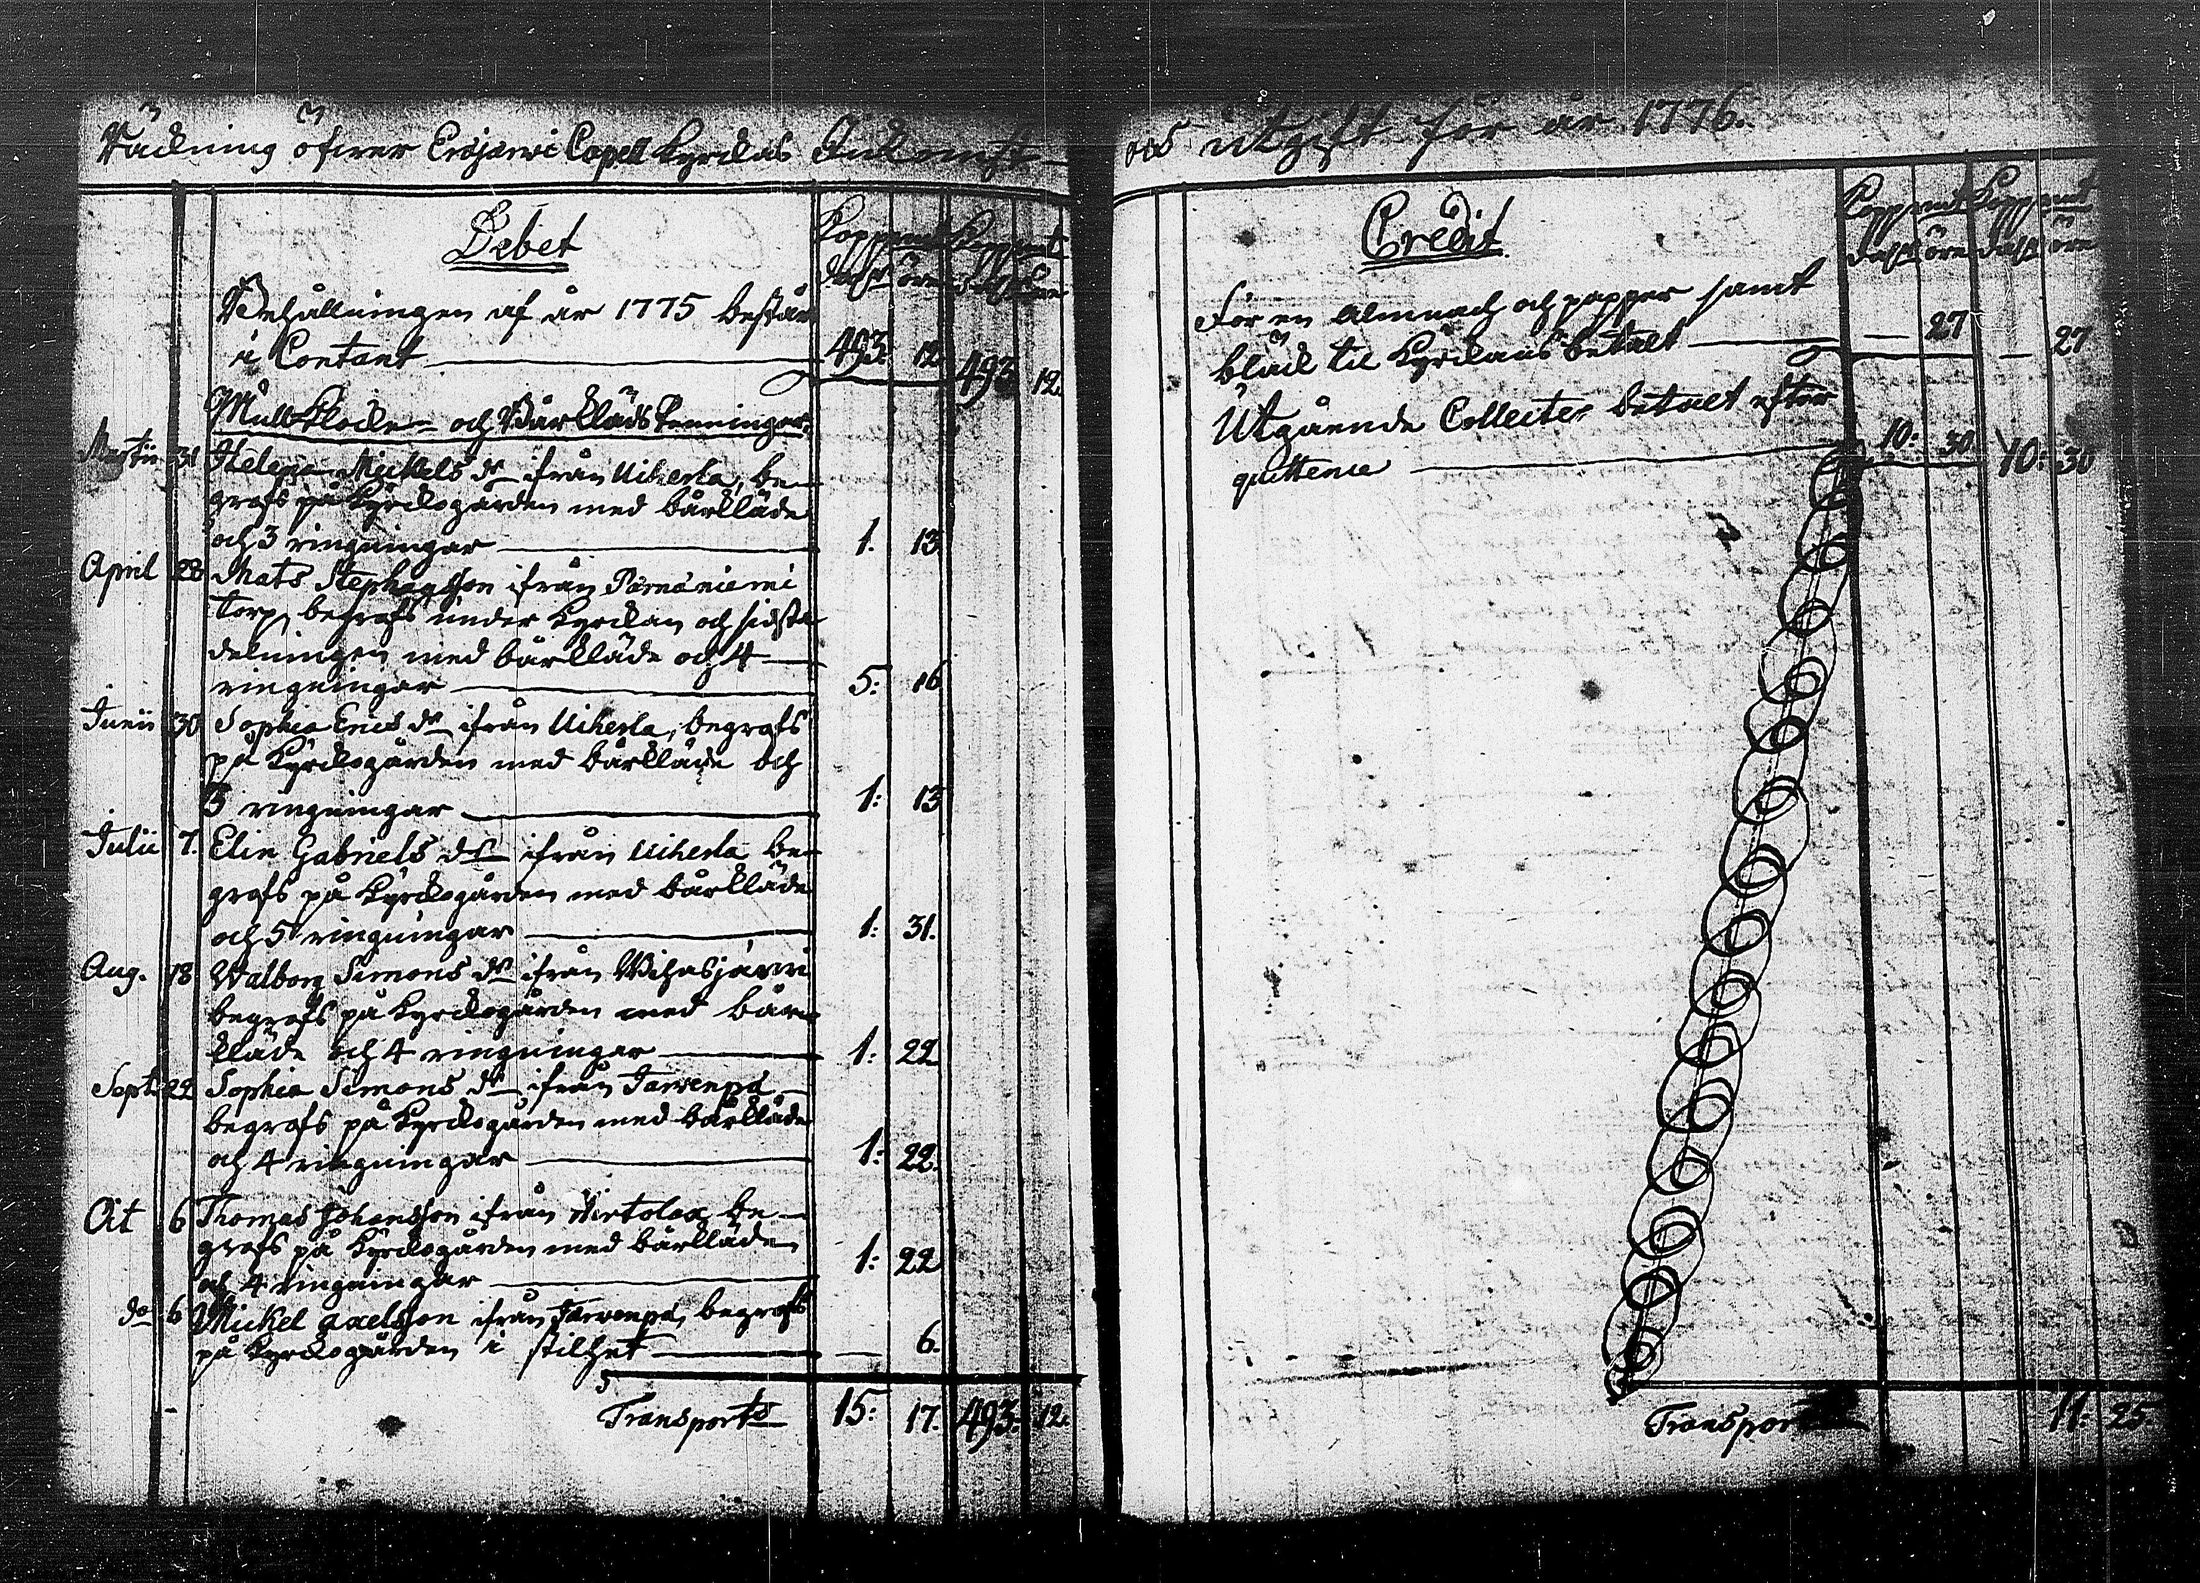 Räckning öfwer Eräjärwi Capell Kyrckas Inkomst
Debet
Koppmt Koppmt
Dahlr öre Dahlr öre
Behållningen af år 1775 består
i Contant 493: 12. 493 12.
Mull Klocke- och Bårkläds Penningar.
Martii 31 Helena Mickels dr ifrån Uiherla, be-
grafs på Kyrckogården med bårkläde
och 3 ringningar 1. 13
April 28 Mats Stephansson ifrån
torp, begrafs under Kyrckan och sidsta
delningen med bårkläde och 4
ringningar 5: 16
Junii 30 Sophia Erics dr ifrån Uiherla, begrafs
på Kyrckogården med bårkläde och
3 ringningar 1: 13
Julii 7. Elin Gabriels dr ifrån Uiherla be-
grafs på Kyrckogården med bårkläde
och 5 ringningar 1: 31.
Aug. 18 Walborg Simons dr ifrån Wihasjärwi
begrafs på Kyrckogården med bår-
kläde och 4 ringningar 1: 22
Sept. 22 Sophia Simons dr ifrån Järwenpä
begrafs på Kyrckogården med bårkläde
och 4 ringningar 1: 22.
Oct 6 Thomas Johansson ifrån be-
grafs på Kyrckogården med bårkläde
och 4 ringningar 1: 22
do 6 Mickel Axelsson ifrån Järwenpä, begrafs
på Kyrckogården i stilhet — 6.
Transporto 15: 17. 493: 12.
och utgift för år 1776.
Credit
Koppmt Koppmt
Dahlr öre Dahlr öre
För en Almnach och papper samt
bläck til Kyrckans betalt — 27 — 27
Utgående Collecter betalt efter
quittence 10: 30 10: 30
Transporto 11: 25